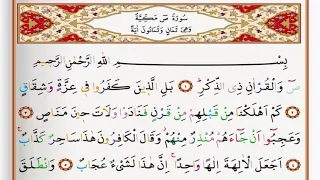 سُورَةُ صٓ مَكِّيَّةٌ
وَهِيَ ثَمَانٍ وَثَمَانُونَ اٰيَةً
بِسْــــمِ اللّٰهِ الرَّحْمٰنِ الرَّحِيمِ
صٓ وَالْقُرْاٰنِ ذِى الذِّكْرِ ۝ بَلِ الَّذ۪ينَ كَفَرُوا ف۪ى عِزَّةٍ وَشِقَاقٍ
۝ كَمْ اَهْلَكْنَا مِنْ قَبْلِهِمْ مِنْ قَرْنٍ فَنَادَوْا وَلَاتَ ح۪ينَ مَنَاصٍ ۝
وَعَجِبُٓوا اَنْ جَٓاءَهُمْ مُنْذِرٌ مِنْهُمْۘ وَقَالَ الْكَافِرُونَ هٰذَا سَاحِرٌ كَذَّابٌۚ ۝
اَجَعَلَ الْاٰلِهَةَ اِلٰهًا وَاحِدًاۚ اِنَّ هٰذَا لَشَىْءٌ عُجَابٌ ۝ وَانْطَلَقَ